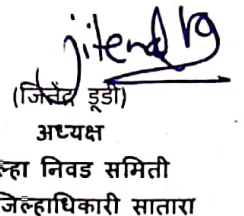 jitend
(जितेंद्र डूडी)
अध्यक्ष
ल्हा निवड समिती
जिल्हाधिकारी सातारा